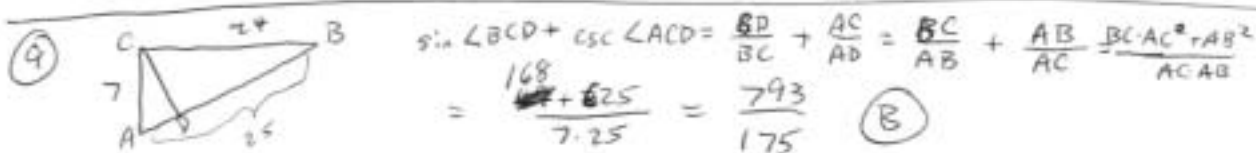 9
C 24 B
7
A 25
sin ∠BCD + csc ∠ACD = BD/BC + AC/AD = BC/AB + AB/AC = BC·AC² + AB²/AC·AB
= 168 + 625/7·25 = 793/175 B